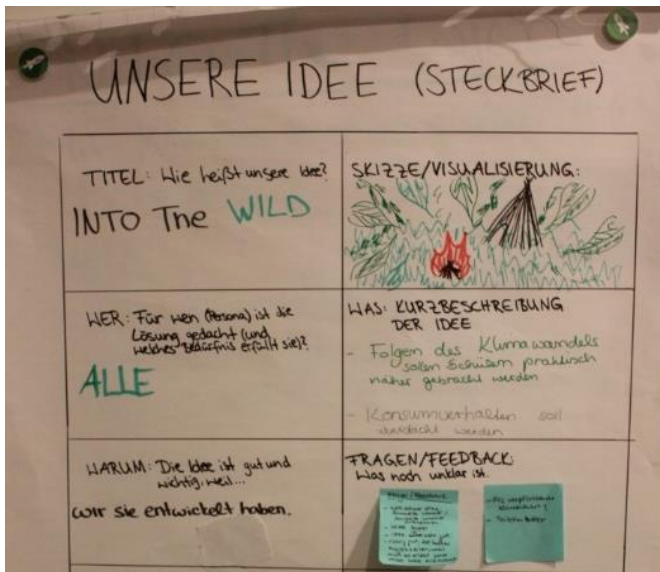 UNSERE IDEE (STECKBRIEF)
TITEL: Wie heißt unsere Idee?
INTO The WILD
SKIZZE/VISUALISIERUNG:
WER: Für wen (Persona) ist die
Lösung gedacht (und
welches Bedürfnis erfüllt sie)?
ALLE
WAS: KURZBESCHREIBUNG
DER IDEE
- Folgen des Klimawandels
sollen Schülern praktisch
näher gebracht werden
- Konsumverhalten soll
werden
WARUM: Die Idee ist gut und
wichtig, weil...
wir sie entwickelt haben.
FRAGEN/FEEDBACK:
Was noch unklar ist.